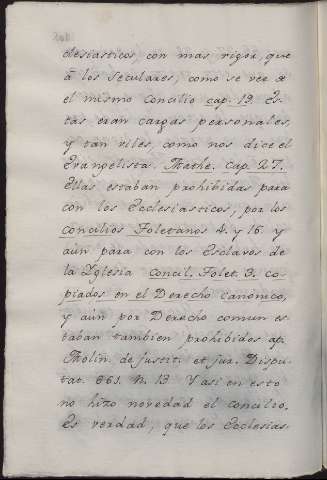 clesiasticos, con mas rigor, que
á los Seculares, como se vee æ
el mismo Concilio cap. 19. Es-
tas eran cargas personales,
y tan viles, como nos dice el
Evangelista. Mathe. cap. 27.
Ellas estaban prohibidas para
con los Ecclesiasticos, por los
Concilios Toletanos 4. y 16. y
aún para con los Esclavos de
la Yglesia Concil. Tolet. 3. co-
piados en el Derecho canonico,
y aún por Derecho comun es-
taban tambien prohibidos ap.
Molin. de justit. et jur. Dispu-
tat. 661. N. 13 Y asi en esto
no hizo novedad el concilio.
Es verdad, que los Ecclesias-